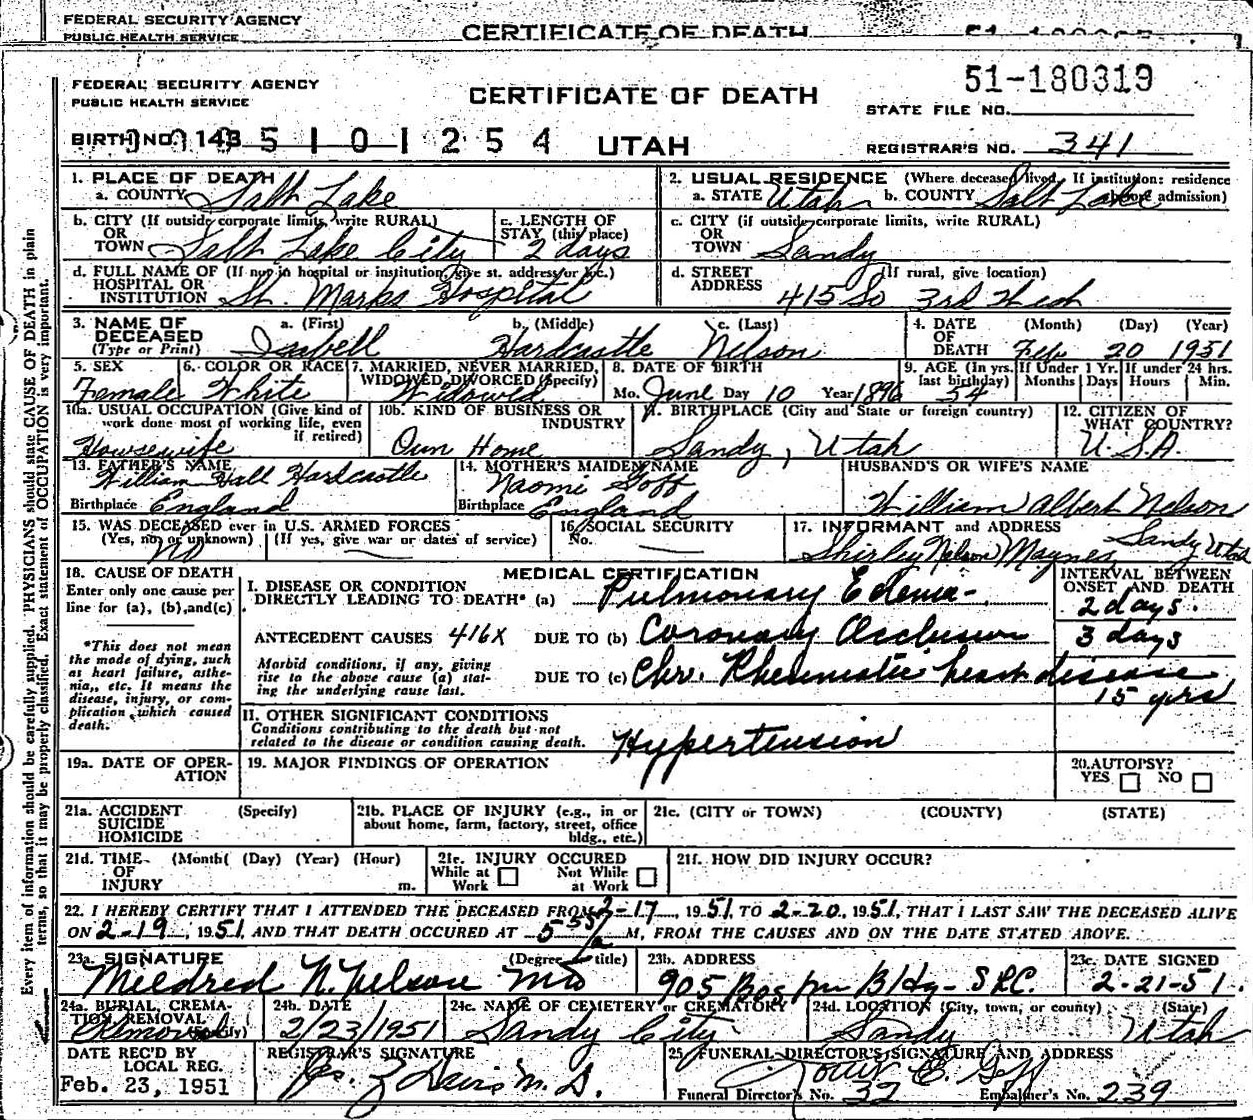 FEDERAL SECURITY AGENCY
PUBLIC HEALTH SERVICE
CERTIFICATE OF DEATH
FEDERAL SECURITY AGENCY
PUBLIC HEALTH SERVICE
CERTIFICATE OF DEATH
51-180319
STATE FILE NO.
BIRTH NO. 143
5 1 0 1 2 5 4
UTAH
REGISTRAR'S NO. 341
1. PLACE OF DEATH
a. COUNTY Salt Lake
2. USUAL RESIDENCE (Where deceased lived. If institution: residence
a. STATE Utah b. COUNTY Salt Lake before admission)
b. CITY (If outside corporate limits, write RURAL)
OR
TOWN Salt Lake City
c. LENGTH OF
STAY (this place)
2 days
c. CITY (if outside corporate limits, write RURAL)
OR
TOWN Sandy
d. FULL NAME OF (If not in hospital or institution, give st. address or loc.)
HOSPITAL OR
INSTITUTION St. Marks Hospital
d. STREET (If rural, give location)
ADDRESS 415 So 3rd West
3. NAME OF
DECEASED
(Type or Print)
a. (First) b. (Middle) c. (Last)
Isabell Hardcastle Nelson
4. DATE (Month) (Day) (Year)
OF
DEATH Feb 20 1951
5. SEX
Female
6. COLOR OR RACE
White
7. MARRIED, NEVER MARRIED,
WIDOWED, DIVORCED (Specify)
Widowed
8. DATE OF BIRTH
Mo. June Day 10 Year 1896
9. AGE (In yrs.
last birthday)
54
If Under 1 Yr.
Months Days
If under 24 hrs.
Hours Min.
10a. USUAL OCCUPATION (Give kind of
work done most of working life, even
if retired)
Housewife
10b. KIND OF BUSINESS OR
INDUSTRY
Own Home
11. BIRTHPLACE (City and State or foreign country)
Sandy, Utah
12. CITIZEN OF
WHAT COUNTRY?
U.S.A.
13. FATHER'S NAME
William Hall Hardcastle
Birthplace England
14. MOTHER'S MAIDEN NAME
Naomi Goff
Birthplace England
HUSBAND'S OR WIFE'S NAME
William Albert Nelson
15. WAS DECEASED ever in U.S. ARMED FORCES
(Yes, no, or unknown) (If yes, give war or dates of service)
No
16. SOCIAL SECURITY
No.
17. INFORMANT and ADDRESS
Shirley Nelson Maynes Sandy Utah
18. CAUSE OF DEATH
Enter only one cause per
line for (a), (b), and (c)
*This does not mean
the mode of dying, such
as heart failure, asthe-
nia, etc. It means the
disease, injury, or com-
plication which caused
death.
MEDICAL CERTIFICATION
I. DISEASE OR CONDITION
DIRECTLY LEADING TO DEATH* (a) Pulmonary Edema
ANTECEDENT CAUSES 416X DUE TO (b) Coronary Occlusion
Morbid conditions, if any, giving
rise to the above cause (a) stat-
ing the underlying cause last.
DUE TO (c) Chr. Rheumatic heart disease
INTERVAL BETWEEN
ONSET AND DEATH
2 days.
3 days
15 yrs
II. OTHER SIGNIFICANT CONDITIONS
Conditions contributing to the death but not
related to the disease or condition causing death.
Hypertension
19a. DATE OF OPER-
ATION
19. MAJOR FINDINGS OF OPERATION
20. AUTOPSY?
YES NO
21a. ACCIDENT (Specify)
SUICIDE
HOMICIDE
21b. PLACE OF INJURY (e.g., in or
about home, farm, factory, street, office
bldg., etc.)
21c. (CITY or TOWN) (COUNTY) (STATE)
21d. TIME (Month) (Day) (Year) (Hour)
OF
INJURY m.
21e. INJURY OCCURED
While at Work Not While at Work
21f. HOW DID INJURY OCCUR?
22. I HEREBY CERTIFY THAT I ATTENDED THE DECEASED FROM 2-17, 1951, TO 2-20, 1951, THAT I LAST SAW THE DECEASED ALIVE
ON 2-19, 1951, AND THAT DEATH OCCURED AT 5 55 a M, FROM THE CAUSES AND ON THE DATE STATED ABOVE.
23a. SIGNATURE (Degree or title)
Mildred N. Nelson MD
23b. ADDRESS
905 Boston Bldg SLC.
23c. DATE SIGNED
2-21-51
24a. BURIAL, CREMA-
TION, REMOVAL (Specify)
Removal
24b. DATE
2/23/1951
24c. NAME OF CEMETERY or CREMATORY
Sandy City
24d. LOCATION (City, town, or county) (State)
Sandy Utah
DATE REC'D BY
LOCAL REG.
Feb. 23, 1951
REGISTRAR'S SIGNATURE
Davis M. D.
25. FUNERAL DIRECTOR'S SIGNATURE AND ADDRESS
E. Goff
Funeral Director's No. 32 Embalmer's No. 239
Every item of information should be carefully supplied. PHYSICIANS should state CAUSE OF DEATH in plain
terms, so that it may be properly classified. Exact statement of OCCUPATION is very important.